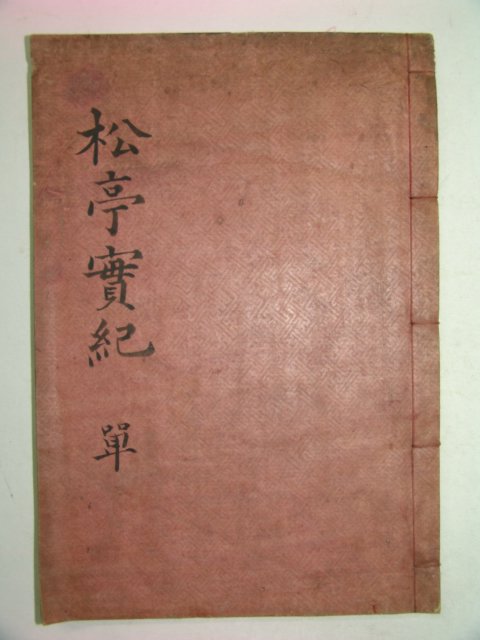 松亭實紀 單